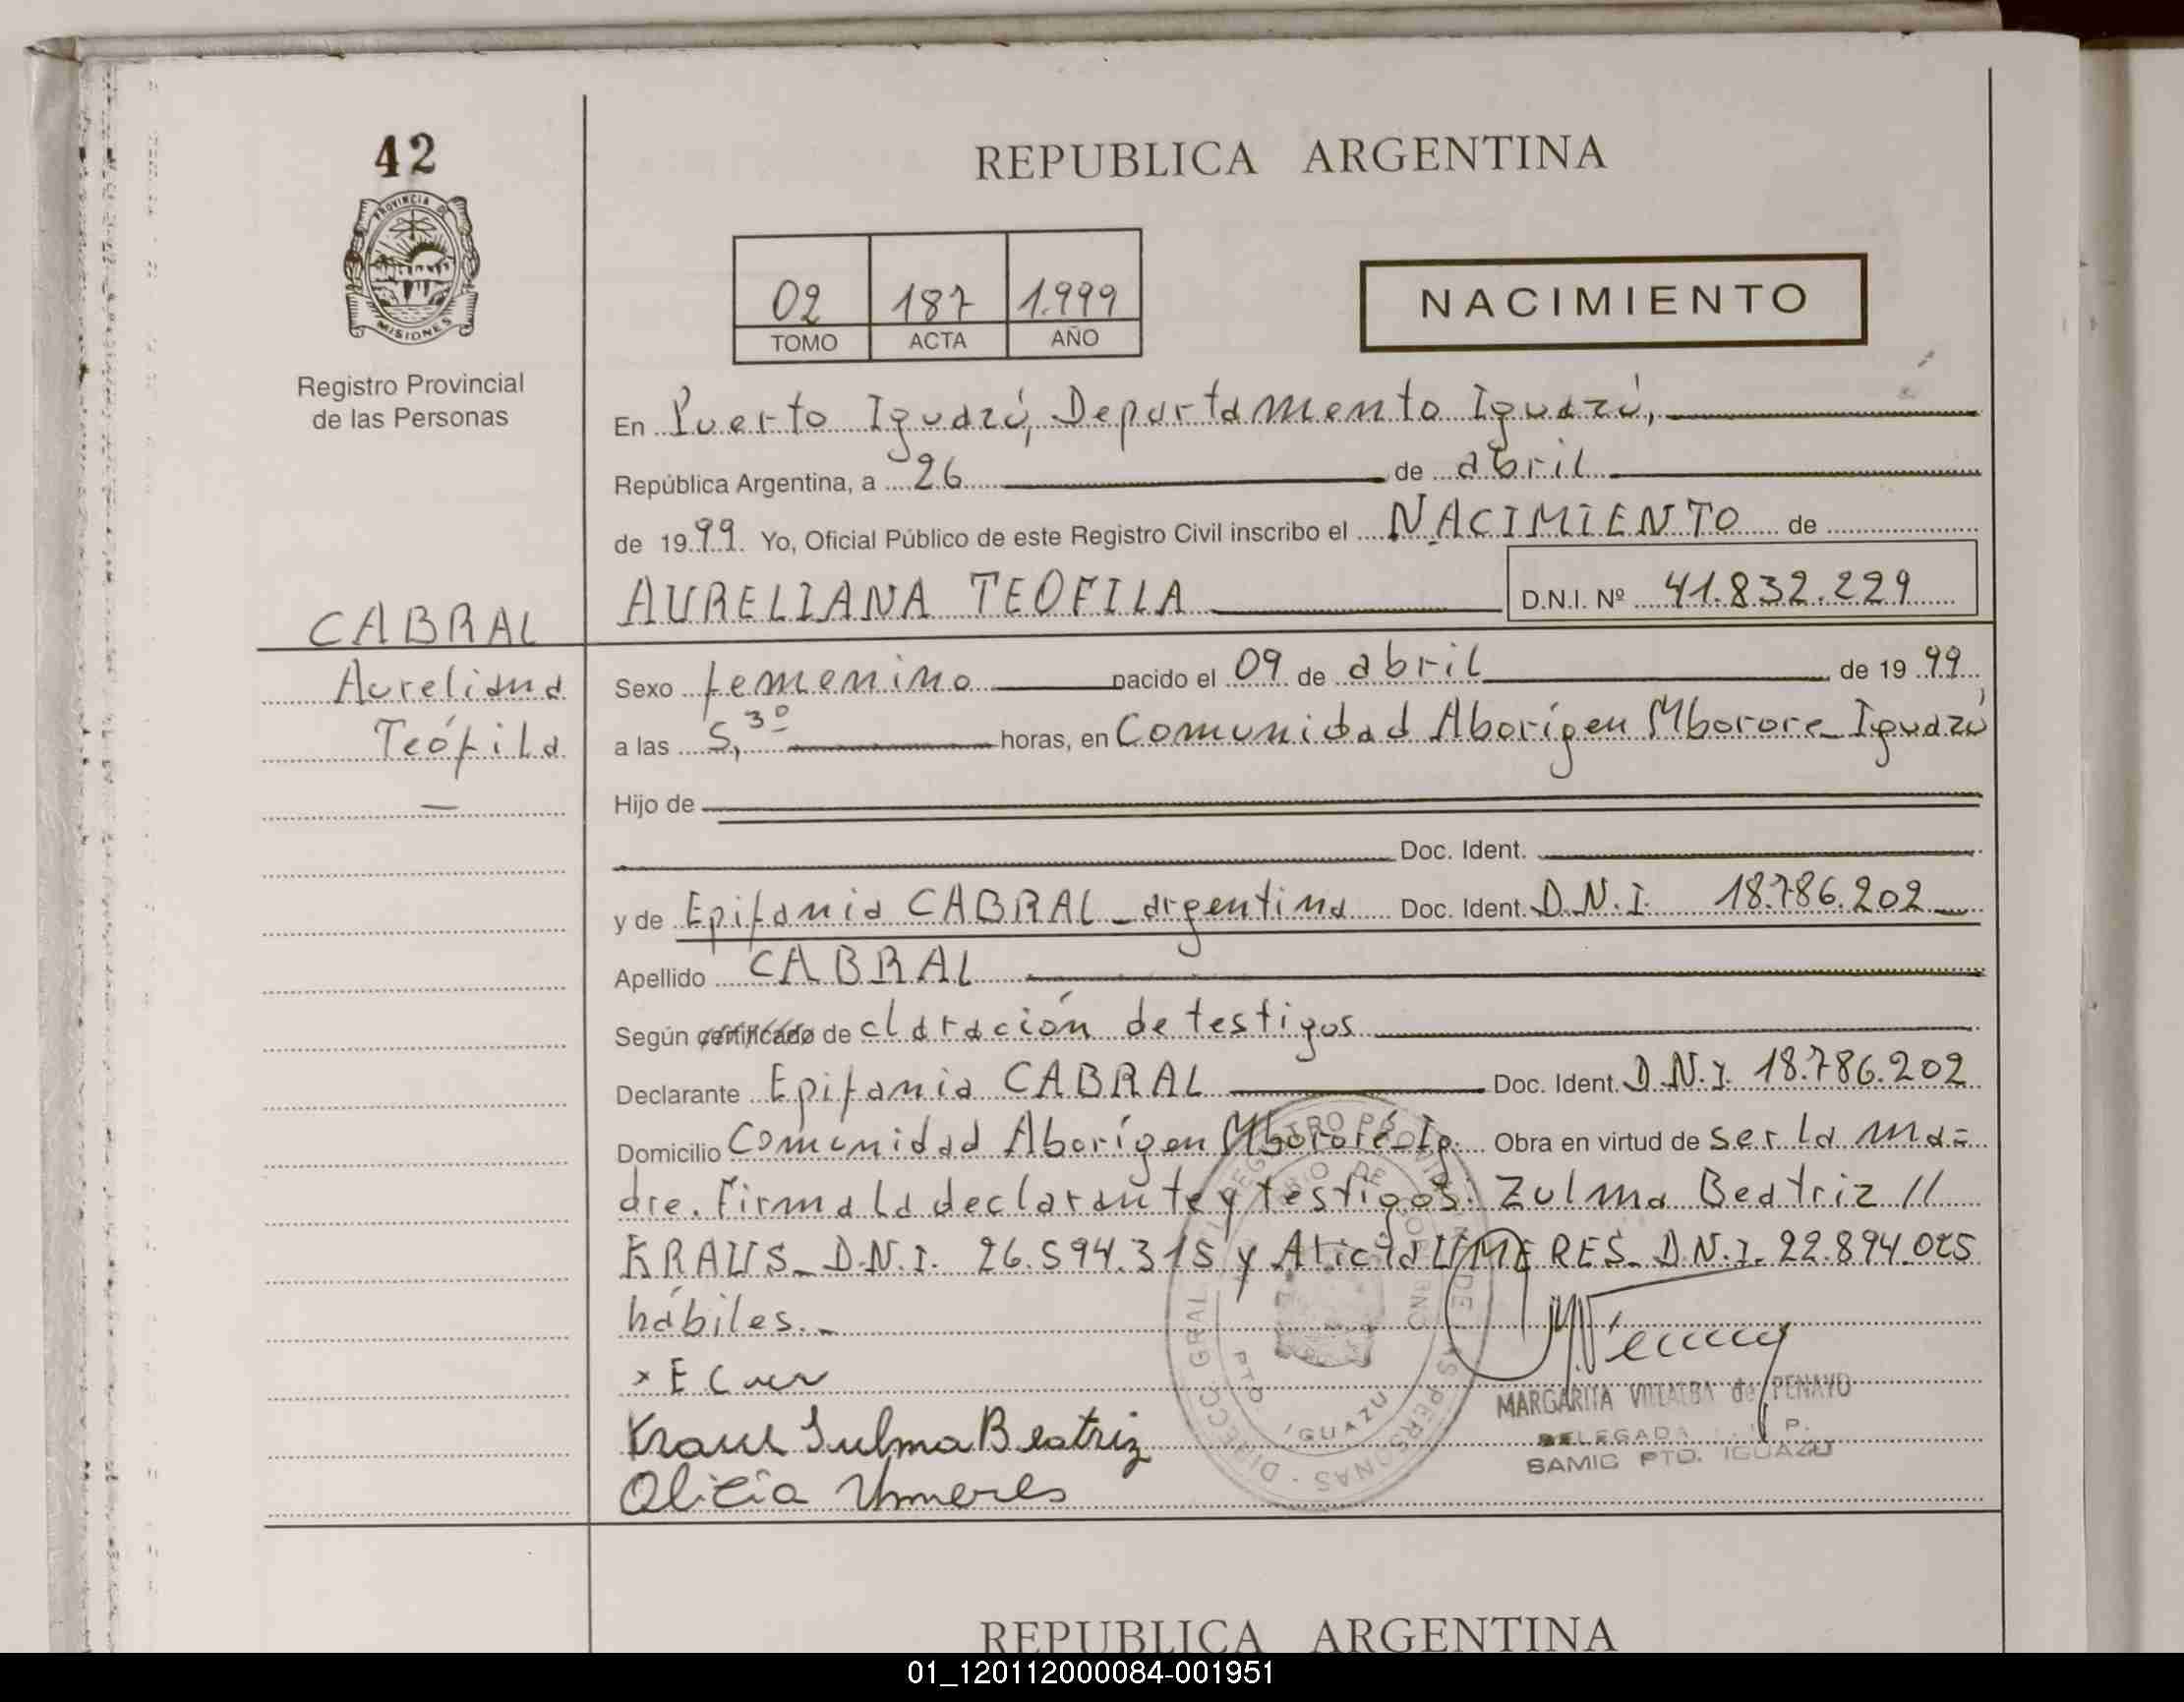 42
REPUBLICA ARGENTINA
PROVINCIA DE
MISIONES
Registro Provincial
de las Personas
02 187 1.999
TOMO ACTA AÑO
NACIMIENTO
En Puerto Iguazú, Departamento Iguazú,
República Argentina, a 26 de abril
de 1999. Yo, Oficial Público de este Registro Civil inscribo el NACIMIENTO de
AURELIANA TEOFILA D.N.I. Nº 41.832.229
CABRAL
Aureliana
Teófila
Sexo femenino nacido el 09 de abril de 1999
a las 5,30 horas, en Comunidad Aborígen Mborore_Iguazú
Hijo de
Doc. Ident.
y de Epifania CABRAL_argentina Doc. Ident. D.N.I. 18.786.202_
Apellido CABRAL
Según certificado de claración de testigos
Declarante Epifania CABRAL Doc. Ident. D.N.I. 18.786.202
Domicilio Comunidad Aborígen Mbororé_Ig. Obra en virtud de ser la ma=
dre. Firma la declarante y testigos: Zulma Beatriz //
KRAUS_D.N.I. 26.594.315 y Alicia UMERES_D.N.I. 22.894.025
hábiles._
Kraus Sulma Beatriz
Alicia Umeres
MARGARITA VILLALBA de PENAYO
DELEGADA R. P.
SAMIC PTO. IGUAZU
DIRECC. GRAL. DEL REGISTRO PROVINCIAL DE LAS PERSONAS
PTO. IGUAZU
REPUBLICA ARGENTINA
01_120112000084-001951